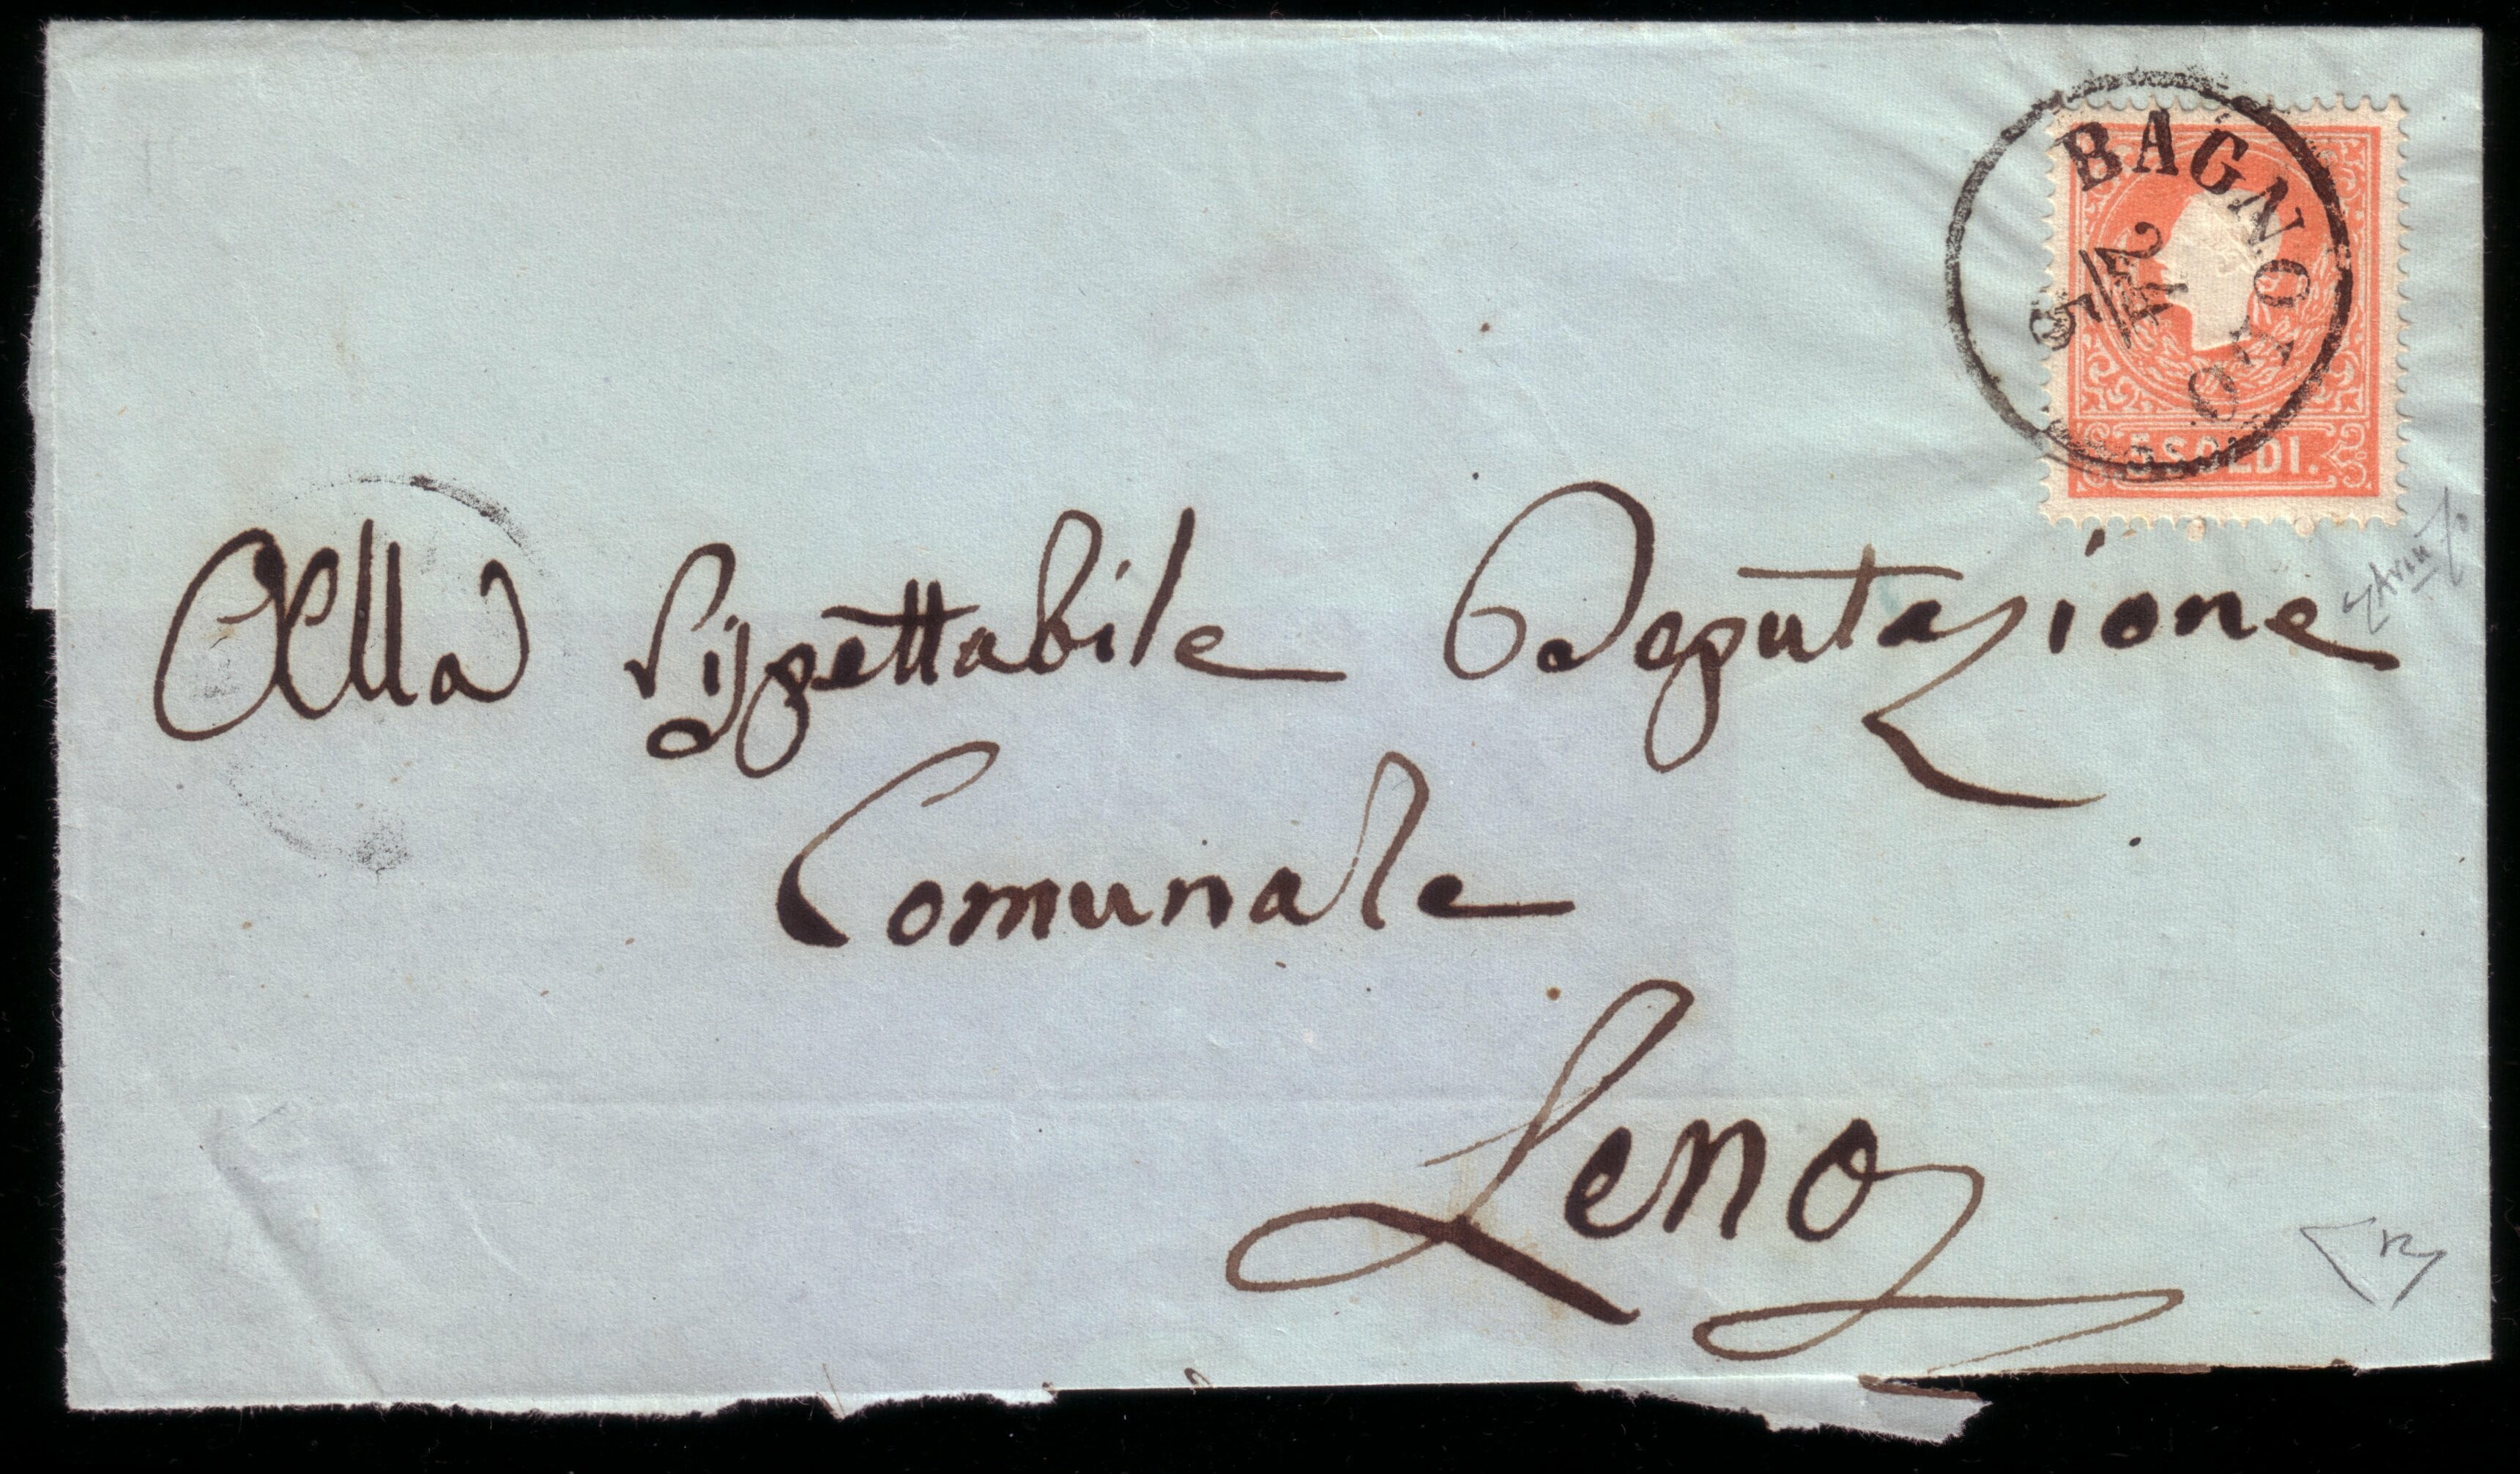 BAGNOLO
24
5
5 SOLDI.
Alla Rispettabile Deputazione
Comunale
Leno